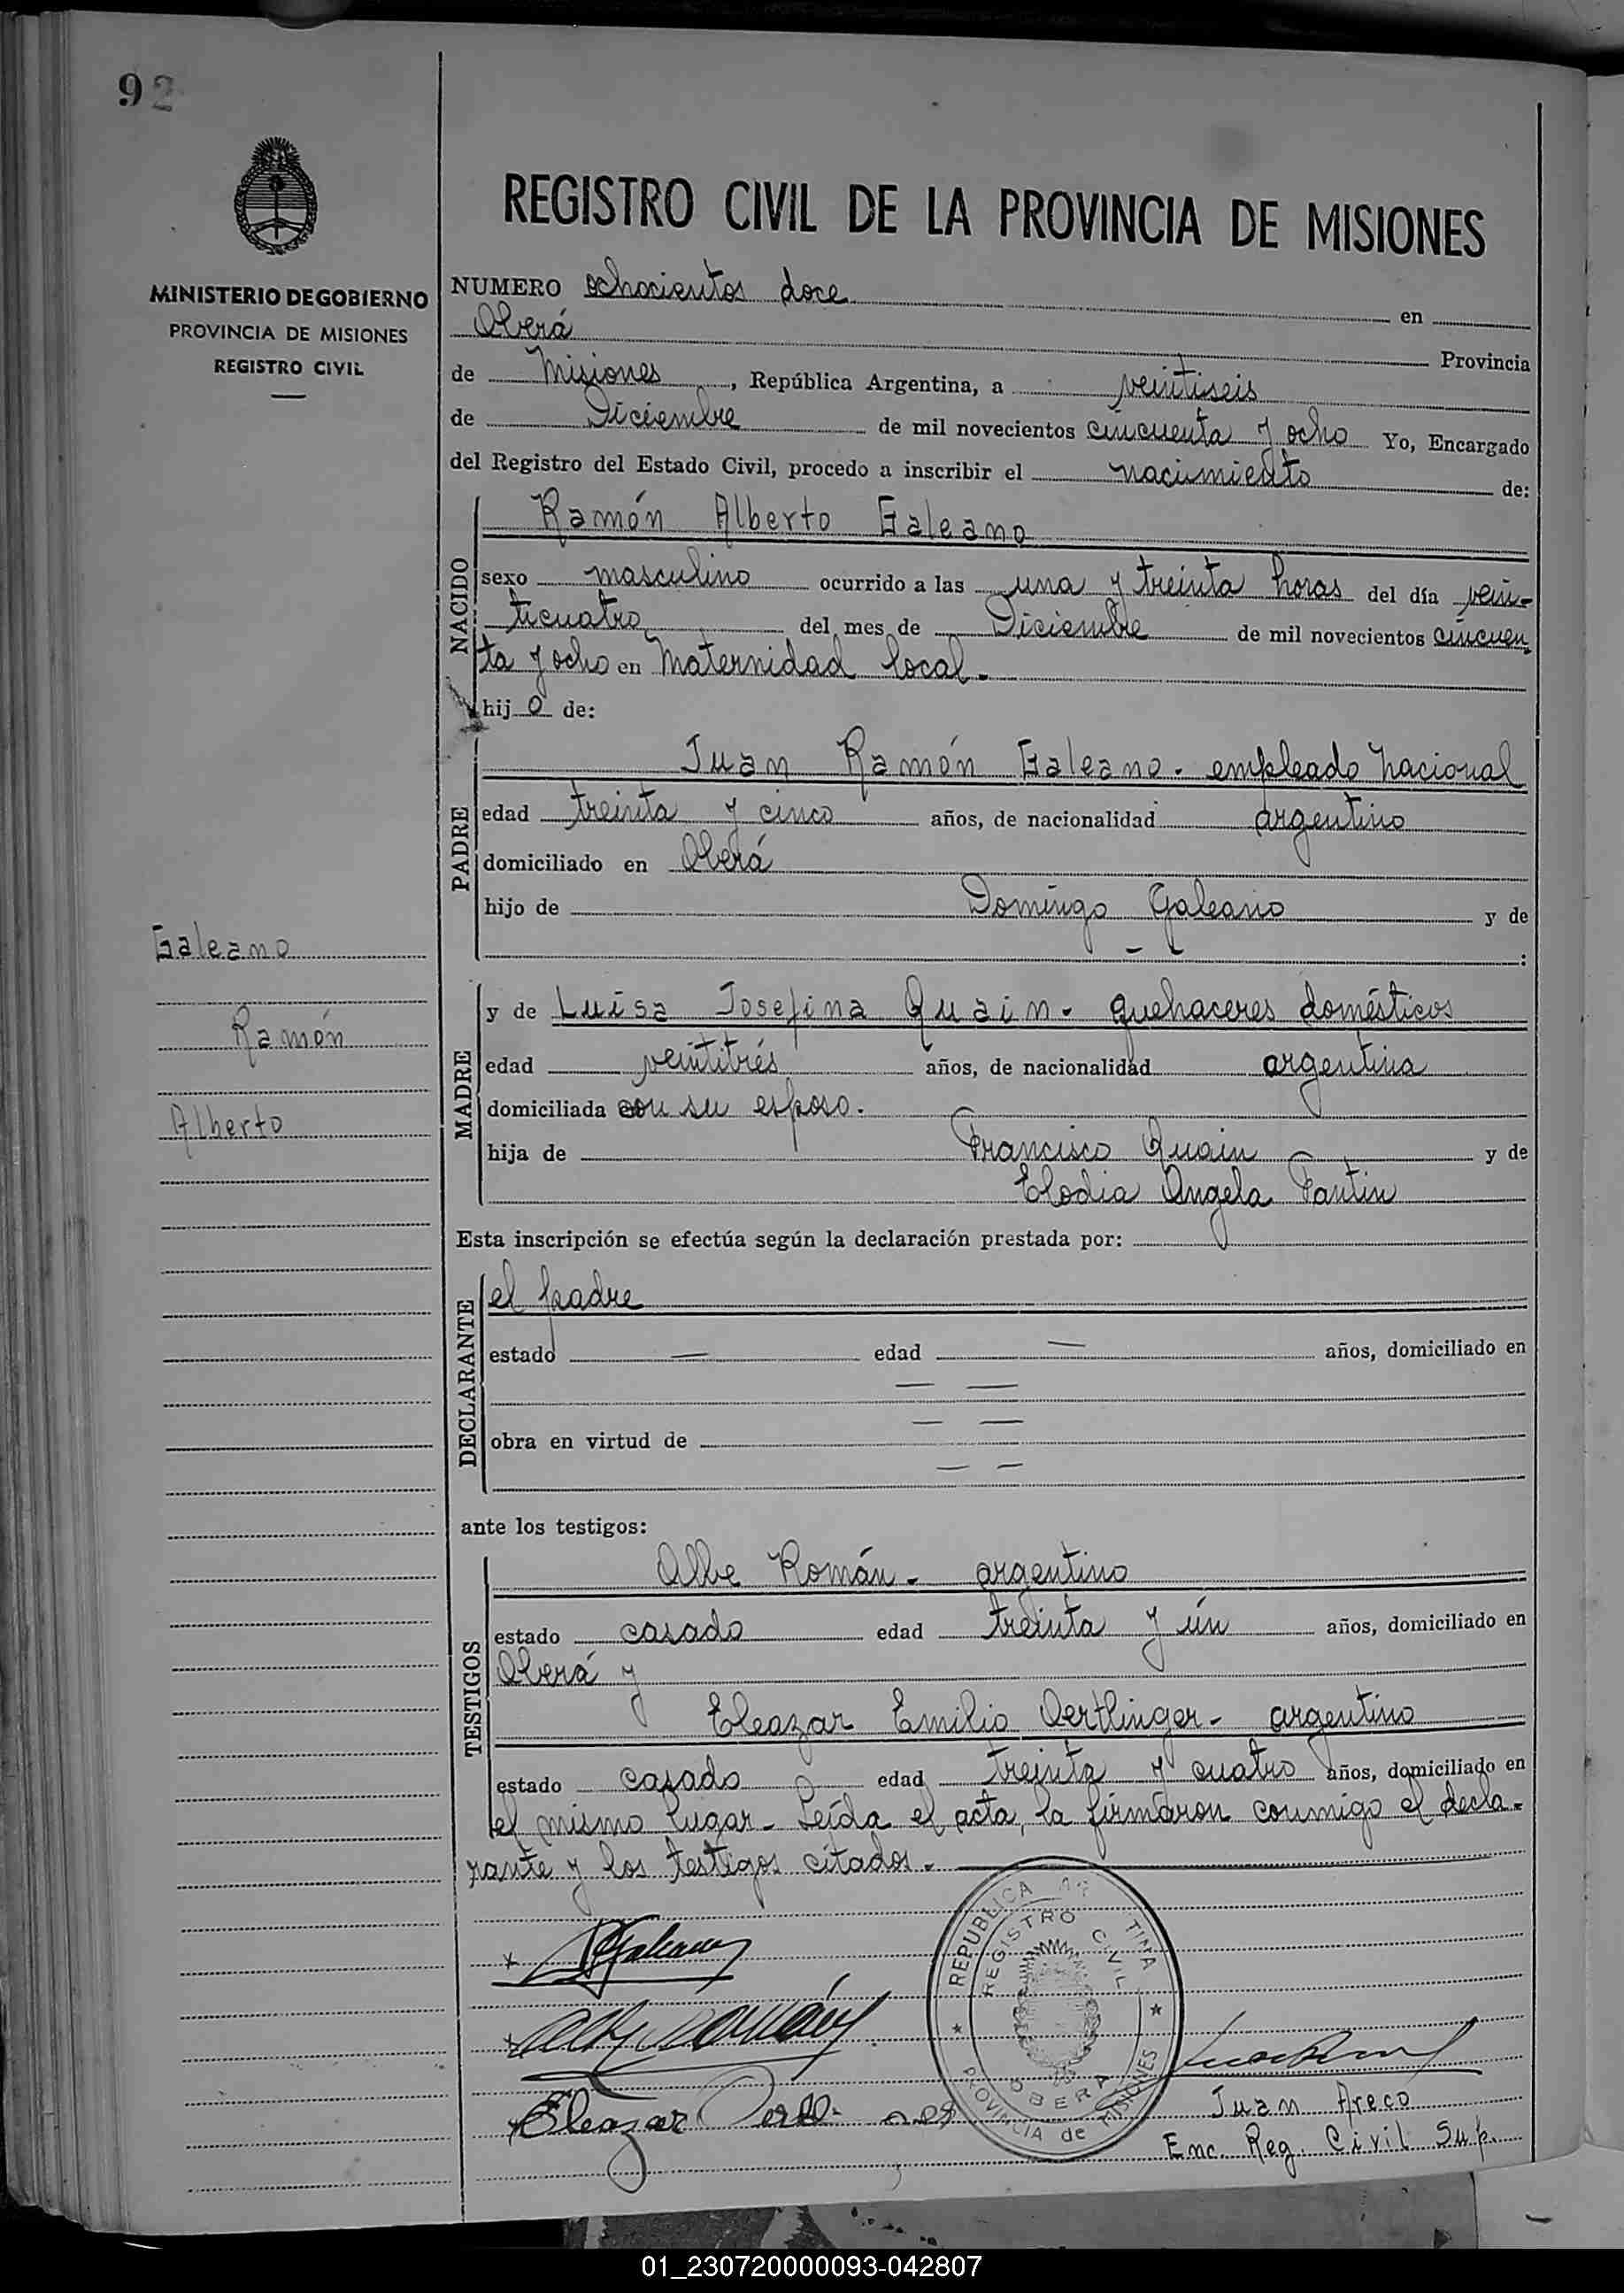 92
REGISTRO CIVIL DE LA PROVINCIA DE MISIONES
MINISTERIO DE GOBIERNO
PROVINCIA DE MISIONES
REGISTRO CIVIL
NUMERO ochocientos doce en
Oberá Provincia
de Misiones, República Argentina, a veintiseis
de Diciembre de mil novecientos cincuenta y ocho Yo, Encargado
del Registro del Estado Civil, procedo a inscribir el nacimiento de:
NACIDO
Ramón Alberto Galeano
sexo masculino ocurrido a las una y treinta horas del día vein-
ticuatro del mes de Diciembre de mil novecientos cincuen
ta y ocho en Maternidad local.
hijo de:
PADRE
Juan Ramón Galeano. empleado Nacional
edad treinta y cinco años, de nacionalidad argentino
domiciliado en Oberá
hijo de Domingo Galeano y de
- - :
Galeano
Ramón
Alberto
MADRE
y de Luisa Josefina Quain. quehaceres domésticos
edad veintitrés años, de nacionalidad argentina
domiciliada con su esposo.
hija de Francisco Quain y de
Elodia Angela Fantin
Esta inscripción se efectúa según la declaración prestada por:
DECLARANTE
el padre
estado — edad — años, domiciliado en
— —
obra en virtud de — —
— —
ante los testigos:
TESTIGOS
Albe Román. argentino
estado casado edad treinta y ún años, domiciliado en
Oberá y
Eleazar Emilio Oertlinger- argentino
estado casado edad treinta y cuatro años, domiciliado en
el mismo lugar. Leída el acta, la firmaron conmigo el decla-
rante y los testigos citados.
x Galeano
x Román
x Eleazar
REPUBLICA AR TINA
REGISTRO CIVIL
OBERA
PROVINCIA de MISIONES
Juan Areco
Enc. Reg. Civil Sup.
01_230720000093-042807